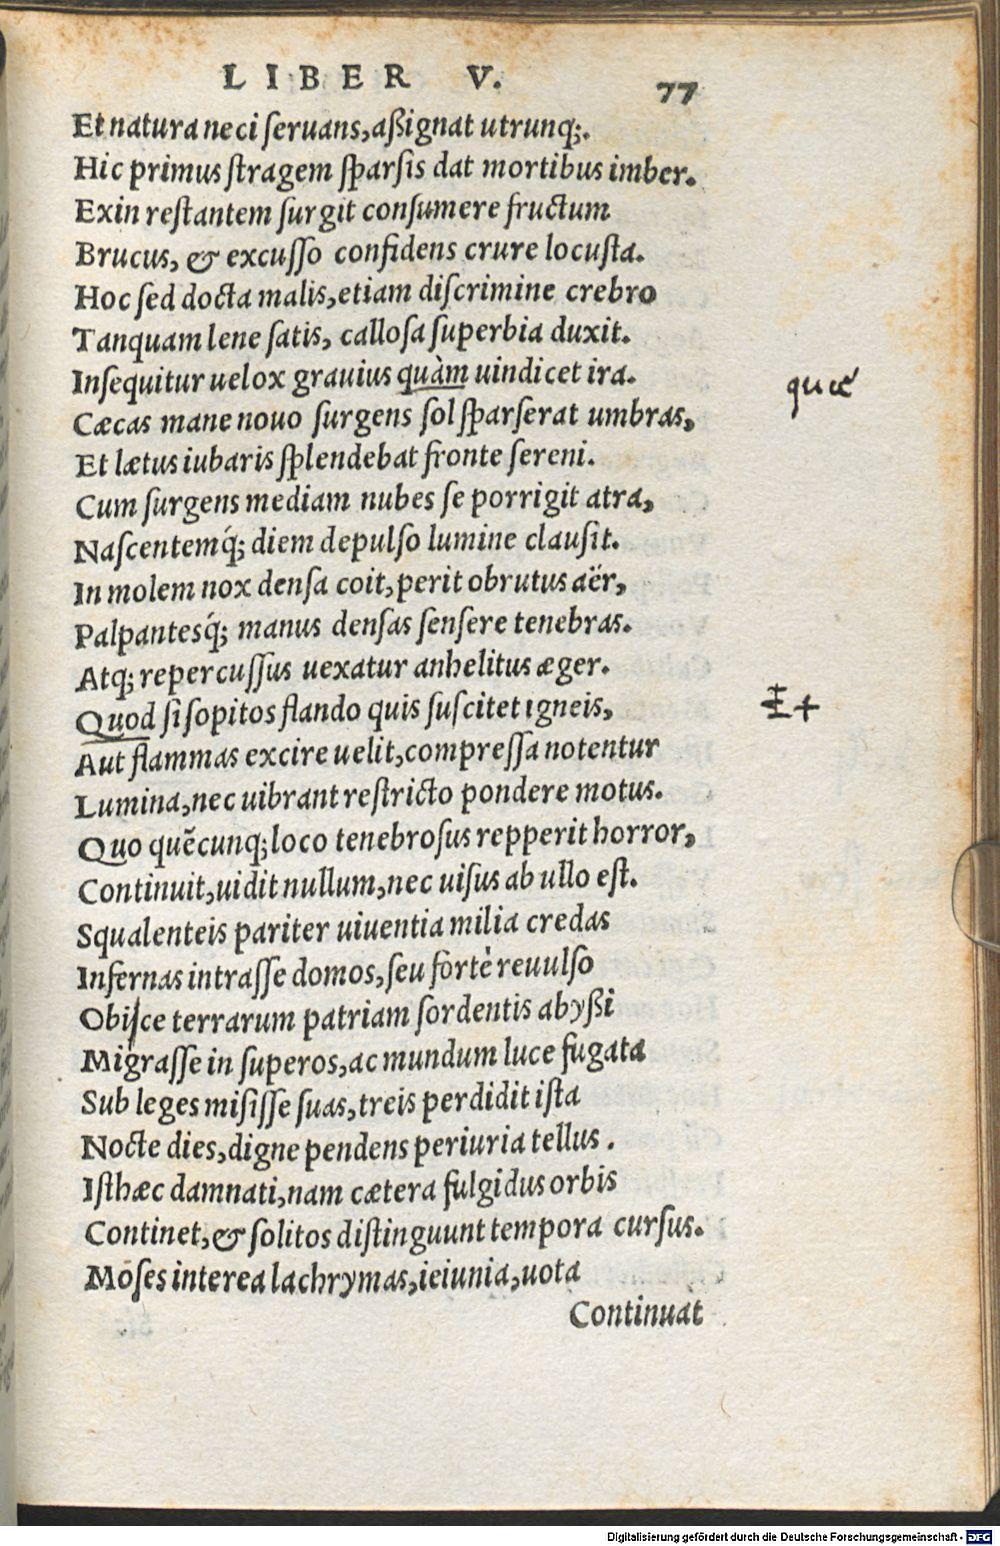 LIBER V. 77
Et natura neci ſeruans, aßignat utrunq;.
Hic primus ſtragem ſparſis dat mortibus imber.
Exin reſtantem ſurgit conſumere fructum
Brucus, & excuſſo confidens crure locuſta.
Hoc ſed docta malis, etiam diſcrimine crebro
Tanquam lene ſatis, calloſa ſuperbia duxit.
Inſequitur uelox grauius quàm uindicet ira.
quæ
Cæcas mane nouo ſurgens ſol ſparſerat umbras,
Et lætus iubaris ſplendebat fronte ſereni.
Cum ſurgens mediam nubes ſe porrigit atra,
Naſcentemq́; diem depulſo lumine clauſit.
In molem nox denſa coit, perit obrutus aër,
Palpantesq́; manus denſas ſenſere tenebras.
Atq; repercuſſus uexatur anhelitus æger.
Quod ſi ſopitos flando quis ſuſcitet igneis,
Et
Aut flammas excire uelit, compreſſa notentur
Lumina, nec uibrant reſtricto pondere motus.
Quo quẽcunq; loco tenebroſus repperit horror,
Continuit, uidit nullum, nec uiſus ab ullo eſt.
Squalenteis pariter uiuentia milia credas
Infernas intraſſe domos, ſeu fortè reuulſo
Obiſce terrarum patriam ſordentis abyßi
Migraſſe in ſuperos, ac mundum luce fugata
Sub leges miſiſſe ſuas, treis perdidit iſta
Nocte dies, digne pendens periuria tellus.
Iſthæc damnati, nam cætera fulgidus orbis
Continet, & ſolitos diſtinguunt tempora curſus.
Moſes interea lachrymas, ieiunia, uota
Continuat
Digitalisierung gefördert durch die Deutsche Forschungsgemeinschaft - DFG